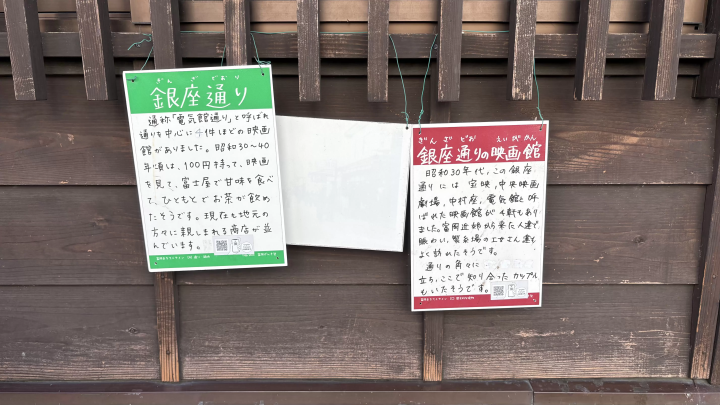 ぎんざどおり
銀座通り
通称「電気館通り」と呼ばれ
通りを中心に4件ほどの映画
館がありました。昭和30〜40
年頃は、100円持って、映画
を見て、富士屋で甘味を食べ
て、ひともとでお茶が飲め
たそうです。現在も地元の
方々に親しまれる商店が並
んでいます。
ぎんざどお えいがかん
銀座通りの映画館
昭和30年代、この銀座
通りには宝映、中央映画
劇場、中村座、電気館と呼
ばれた映画館が4軒もあり
ました。富岡近郊から来た人達で
賑わい、製糸場の工女さん達も
よく訪れたそうです。
通りの角々に
立ち、ここで知り合ったカップル
もいたそうです。